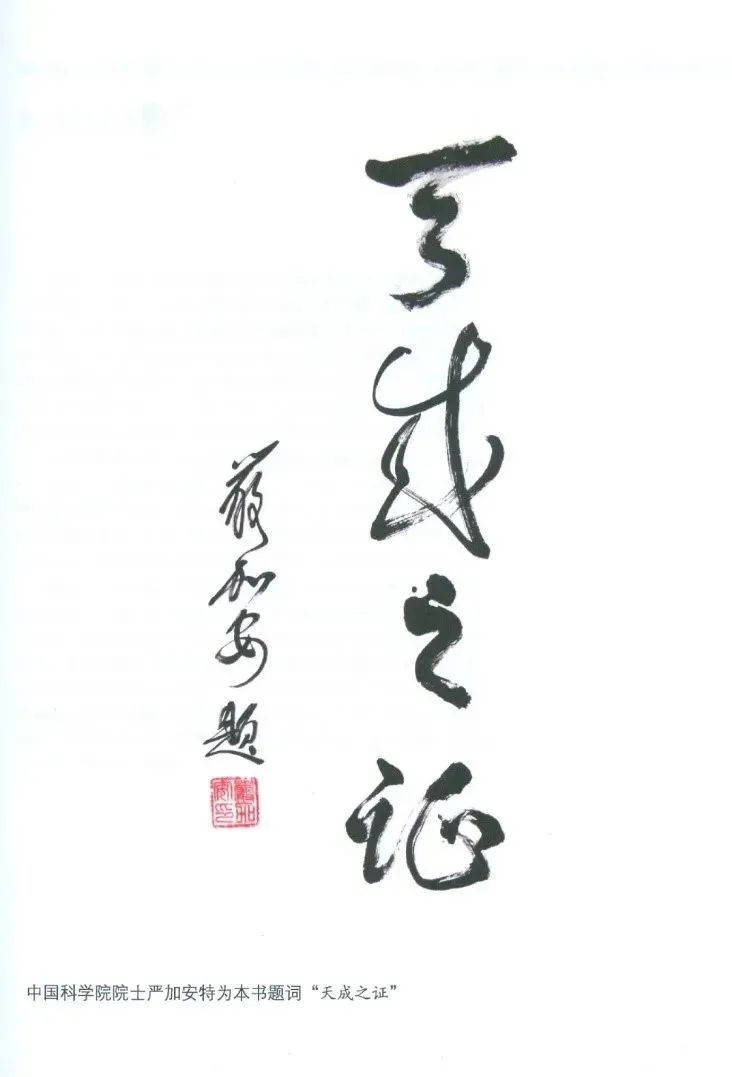 天成之证
嚴加安題
嚴加安印
中国科学院院士严加安特为本书题词“天成之证”